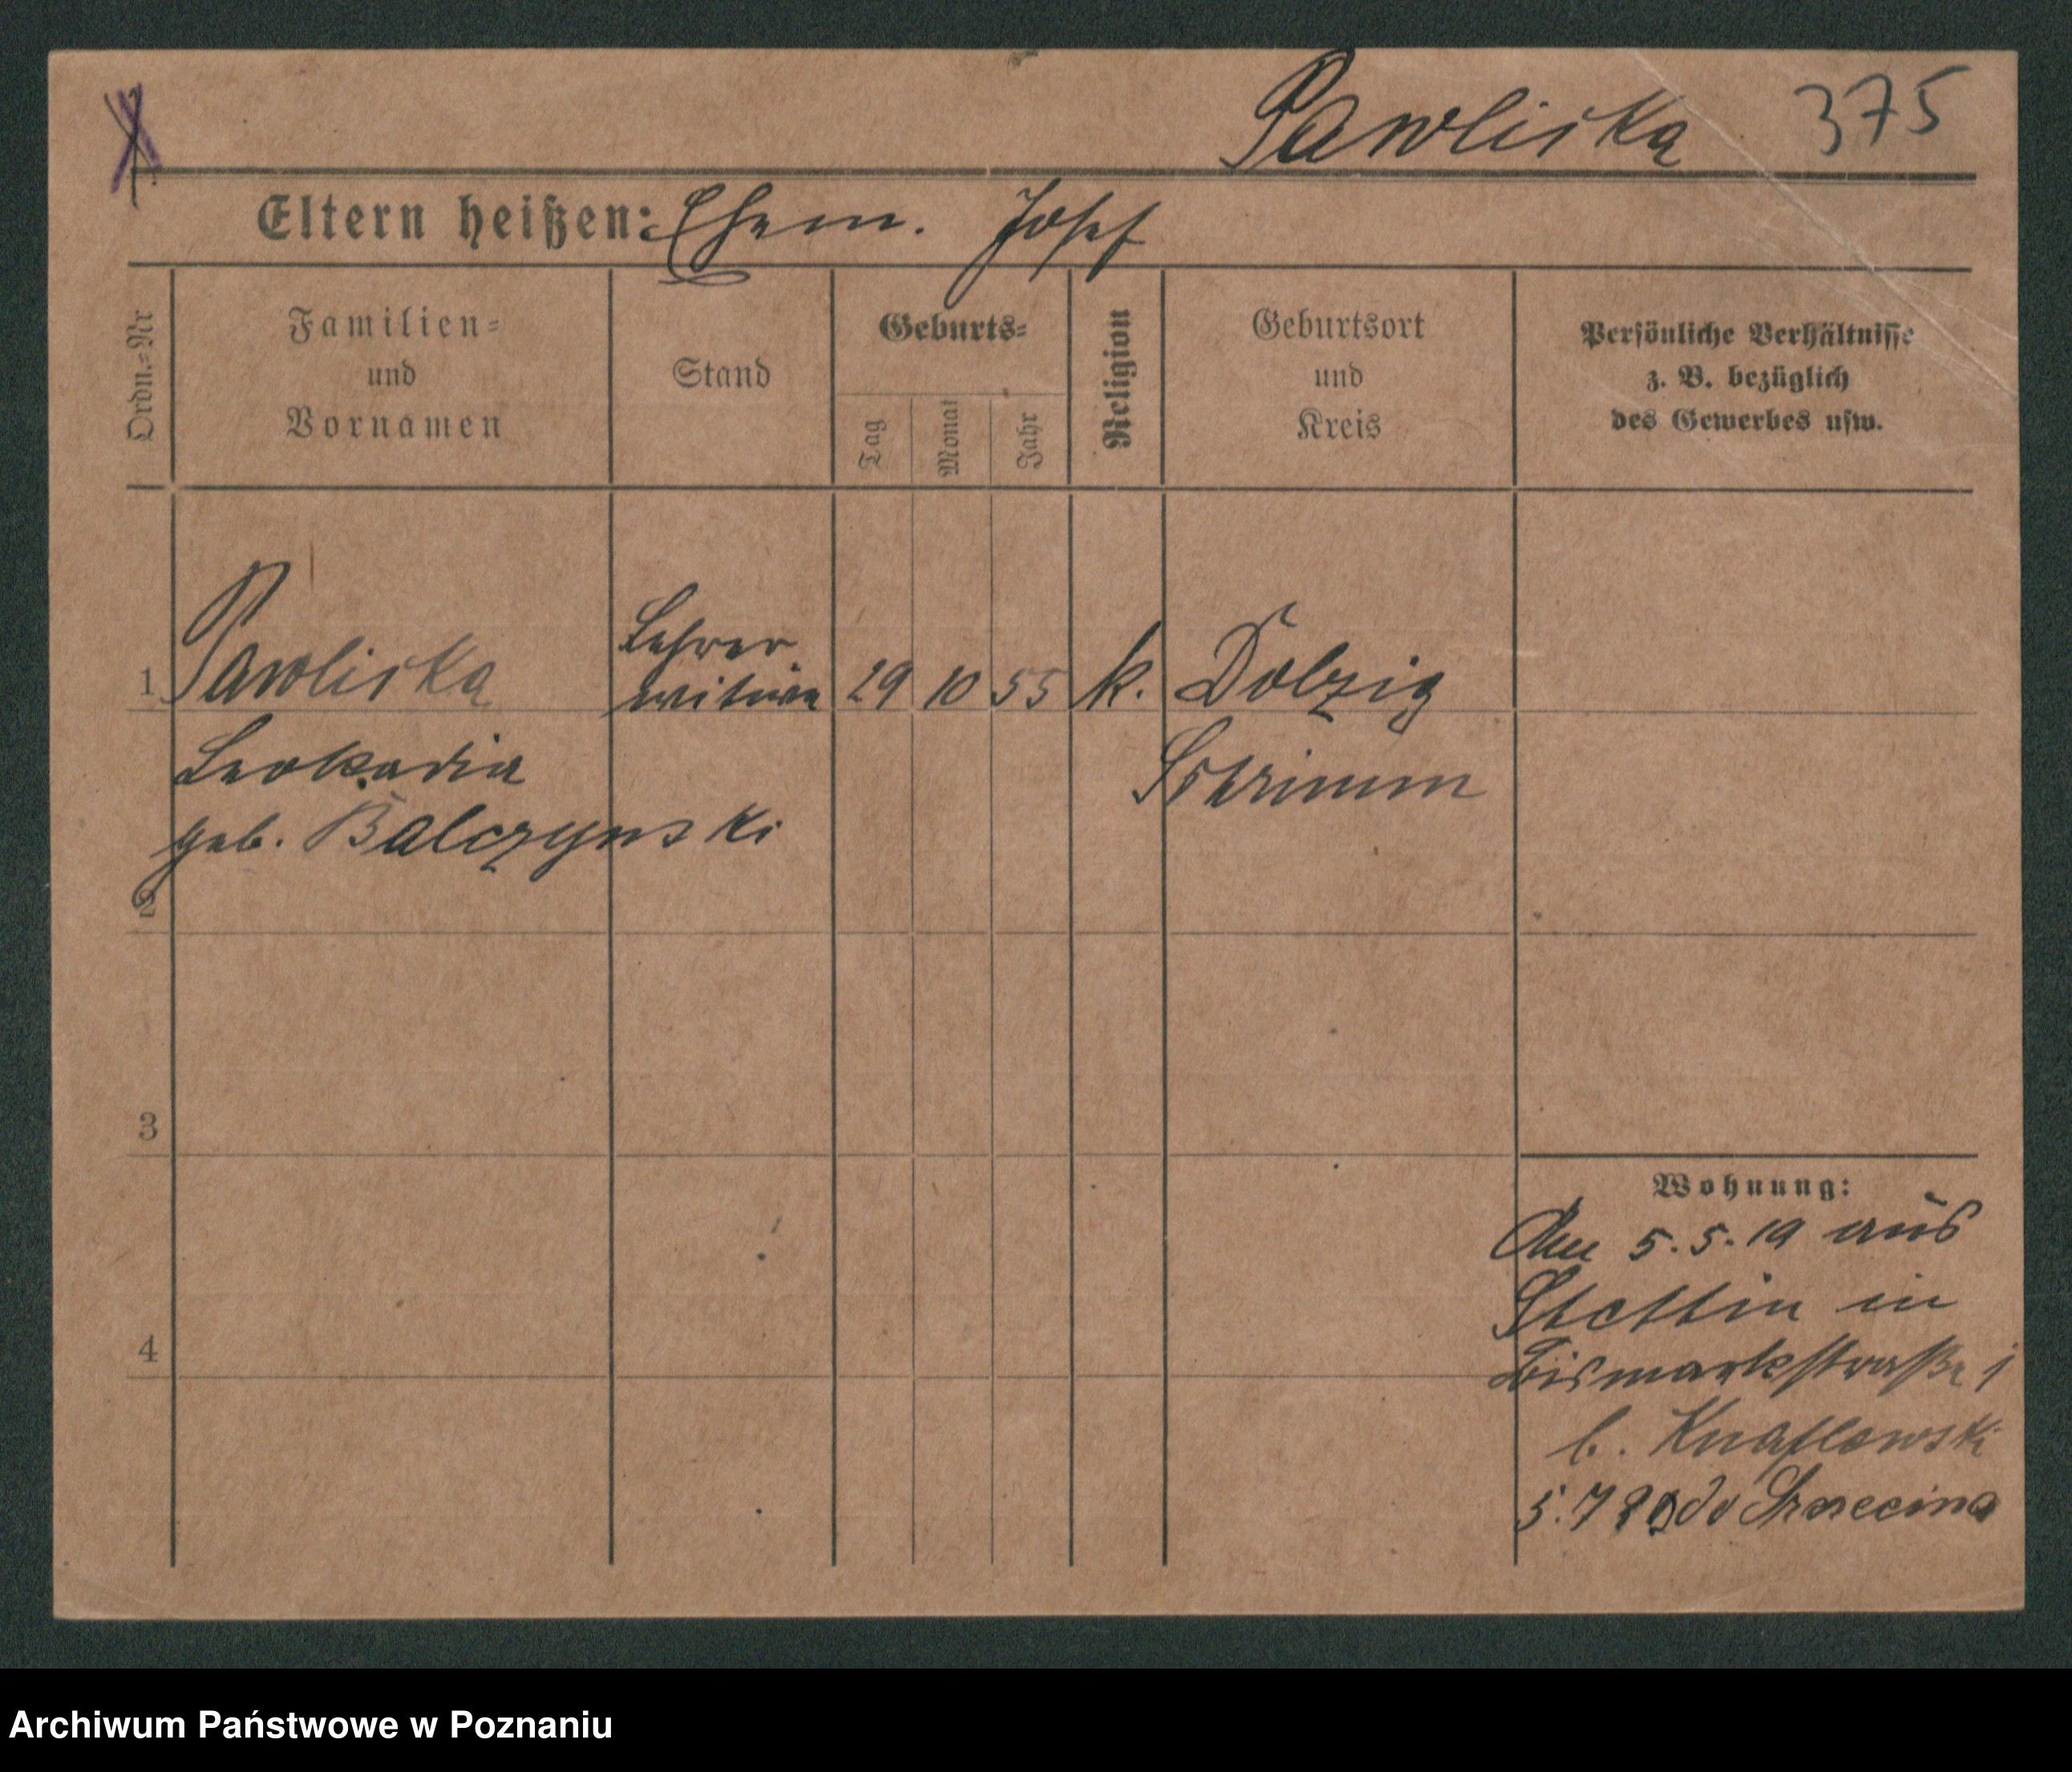 Pawliska 375
Eltern heißen: Ehem. Josef
Ordn.=Nr
Familien=
und
Vornamen
Stand
Geburts=
Tag
Monat
Jahr
Religion
Geburtsort
und
Kreis
Persönliche Verhältnisse
z. B. bezüglich
des Gewerbes usw.
Lehrer
1 Pawliska witwe 29 10 55 k. Dolzig
Leokadia Schrimm
geb. Balczynski
2
3
Wohnung:
5.5.19 aus
Stettin in
4
Bismarkstraße 1
b. Knaflowski
5.7 20 do Szczecina
Archiwum Państwowe w Poznaniu